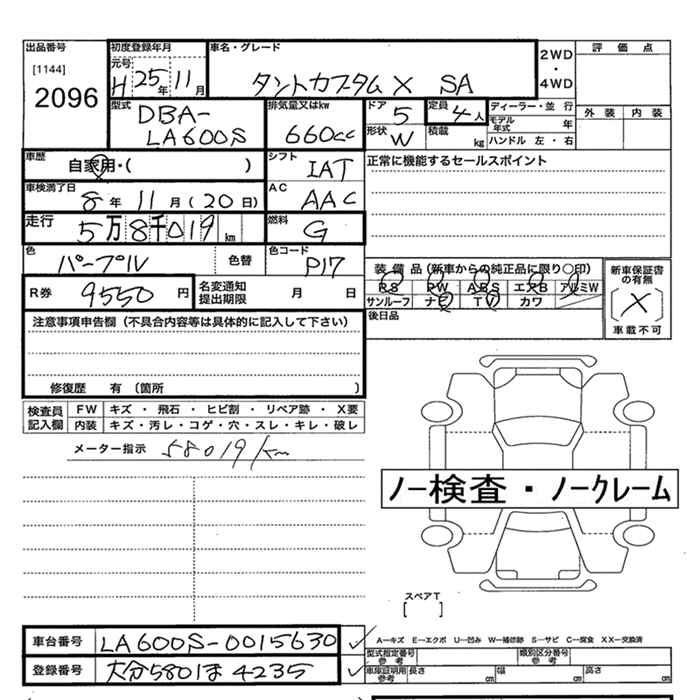 出品番号
[1144]
2096
初度登録年月
元号
H 25年 11月
車名・グレード
タントカスタム X SA
2WD
・
4WD
評価点
外装 内装
型式
DBA-
LA600S
排気量又はkw
660cc
ドア 5
定員 4人
形状 W
積載 kg
ディーラー・並行
モデル年式 年
ハンドル 左・右
車歴
自家用・( )
シフト
IAT
正常に機能するセールスポイント
車検満了日
8年 11月(20日)
AC
AAC
走行
5万8千019km
燃料
G
色
パープル
色替
色コード
P17
装備品(新車からの純正品に限り○印)
PS PW ABS エアB アルミW
サンルーフ ナビ TV カワ
新車保証書の有無
(X)
車載不可
R券 9550円
名変通知
提出期限
月 日
後日品
注意事項申告欄(不具合内容等は具体的に記入して下さい)
修復歴 有 (箇所 )
検査員
記入欄
FW キズ ・ 飛石 ・ ヒビ割 ・ リペア跡 ・ X要
内装 キズ・汚レ・コゲ・穴・スレ・キレ・破レ
メーター指示 58019km
ノー検査・ノークレーム
スペアT
[ ]
車台番号 LA600S-0015630
A-キズ E-エクボ U-凹み W-補修跡 S-サビ C-腐食 XX-交換済
型式指定番号
参考
類別区分番号
参考
登録番号 大分580ほ4235
車庫証明用
参考
長さ cm 幅 cm 高さ cm